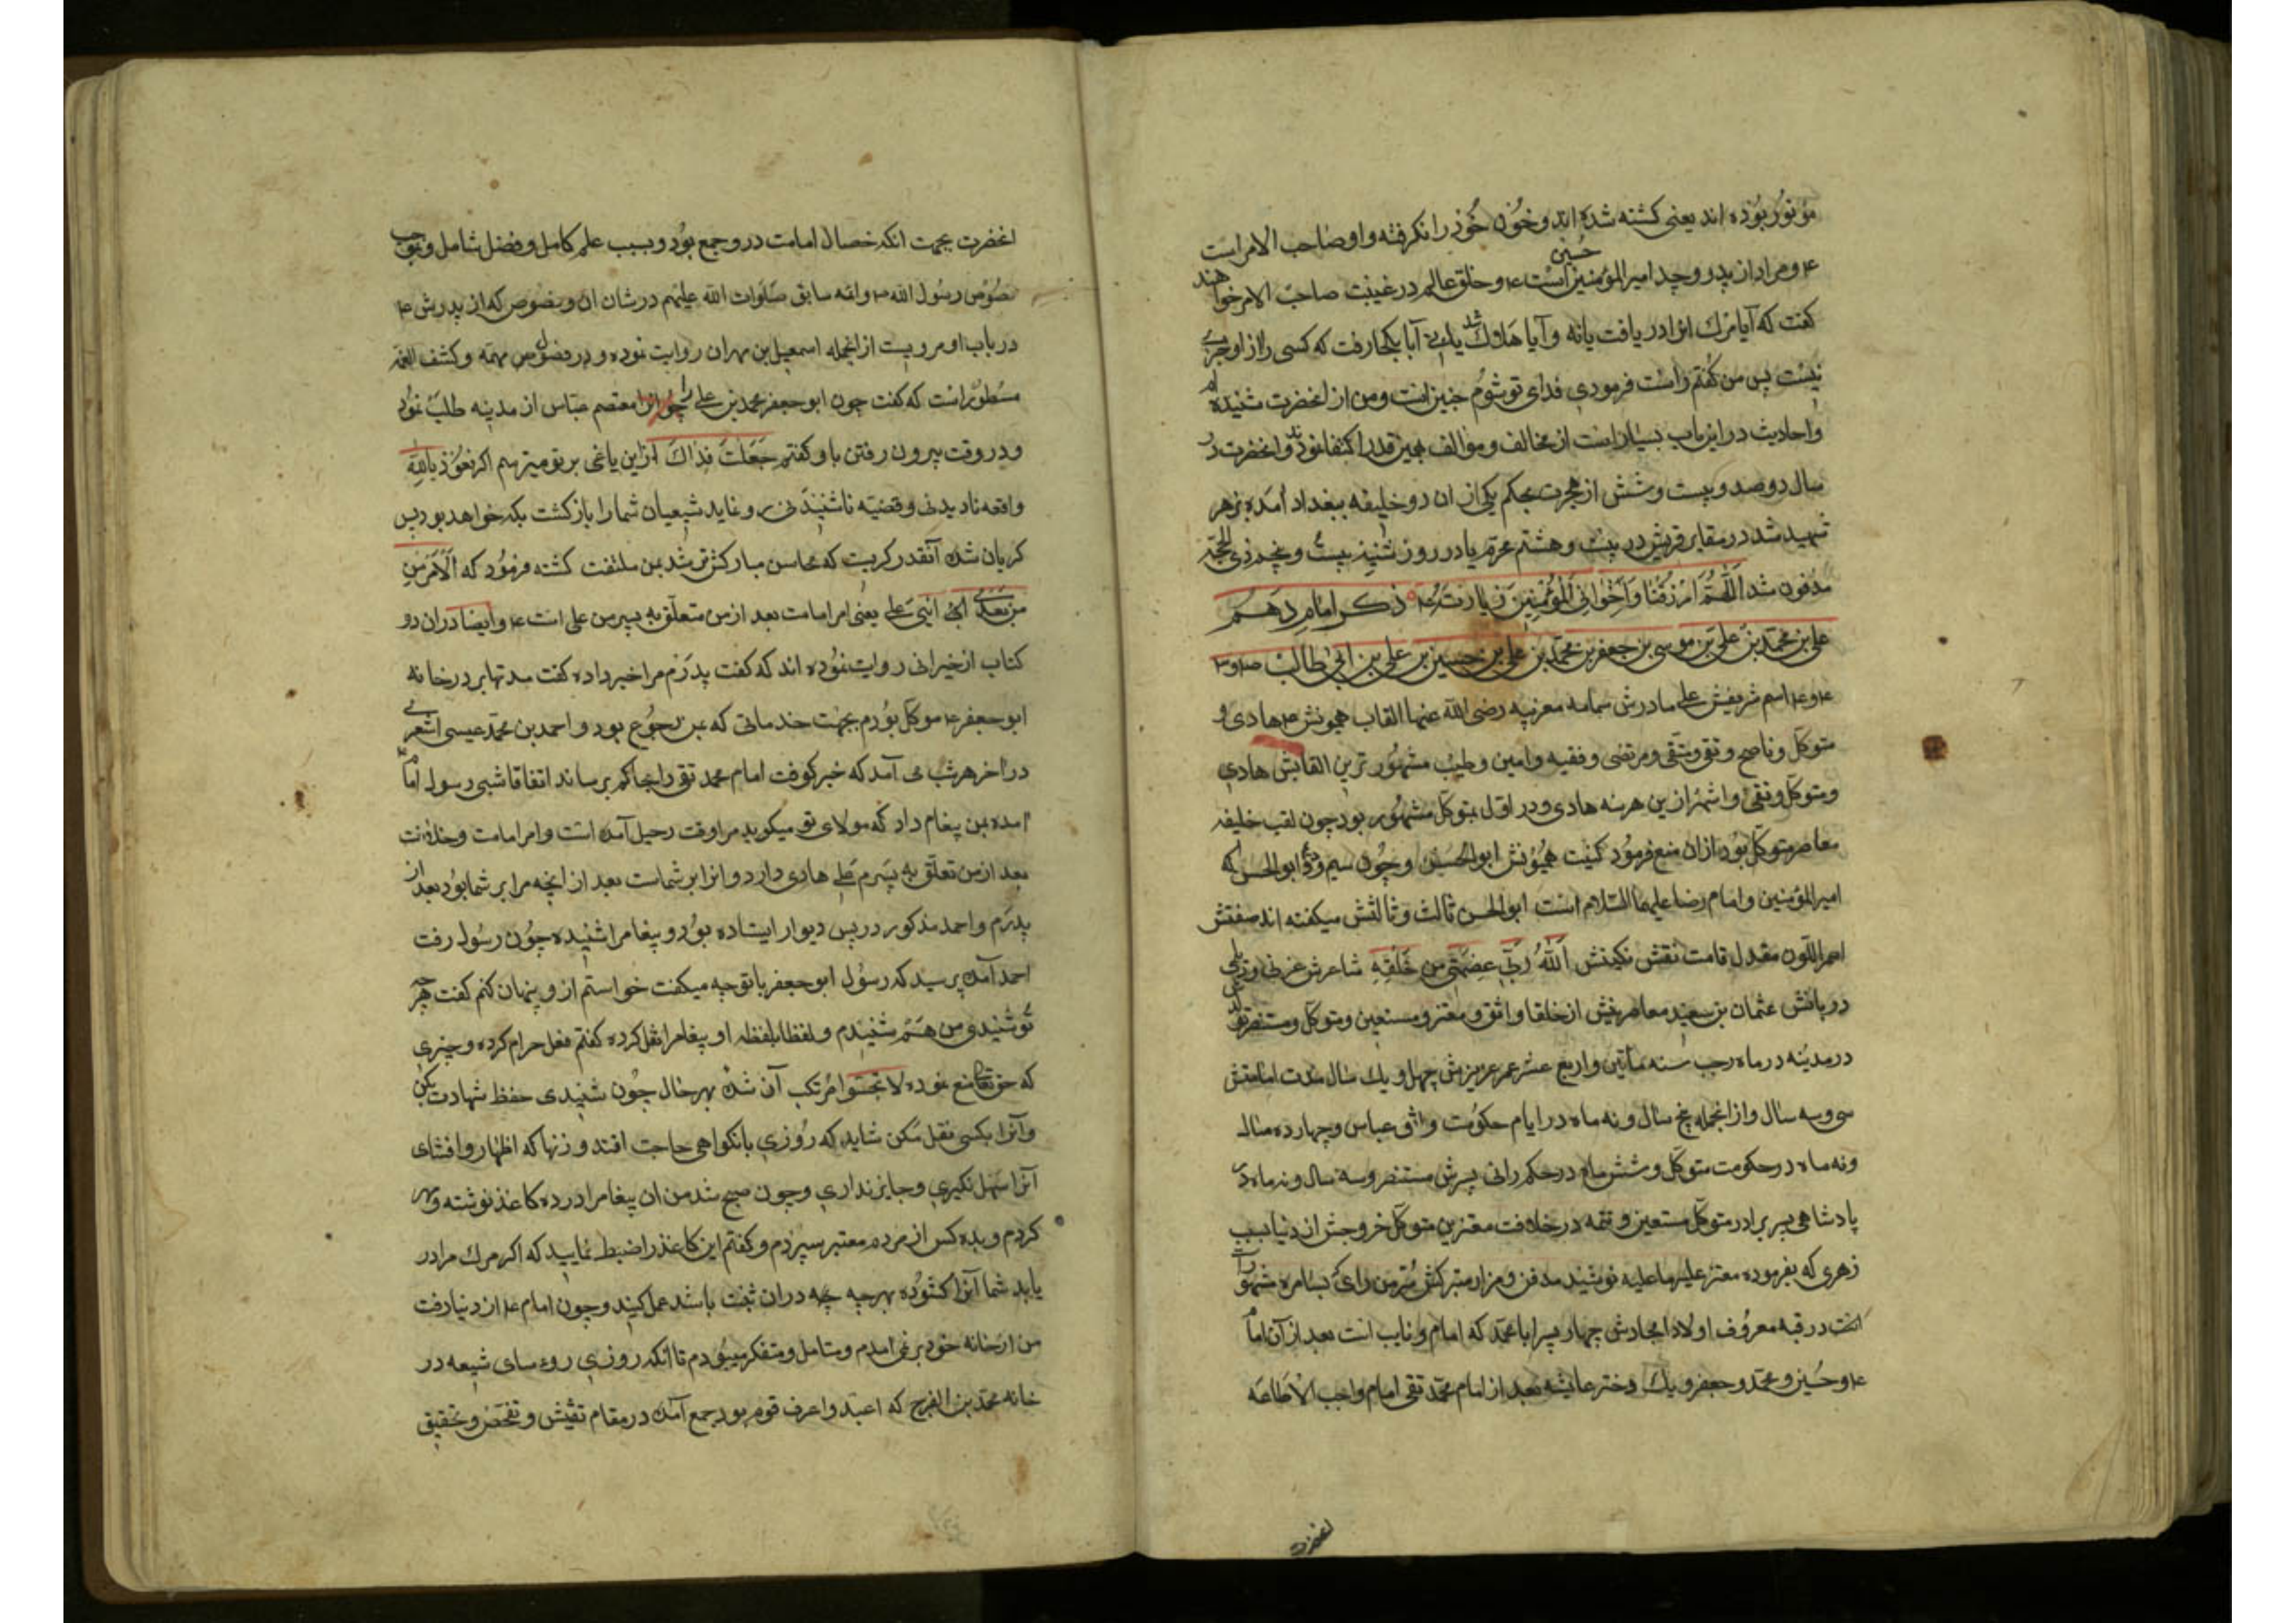 موتور بوده اند یعنی کشته شده اند و خون خود را نکرفته و او صاحب الامر است
ع و مراد از پدر و جد امیر المؤمنین حسین است ع و خلق عالم در غیبت صاحب الامر خواهند
کفت که آیا مرک او را در یافت یا نه و آیا هلاک شد یا بکجا رفت که کسی را از او خبری
نیست پس من کفتم راست فرمودی فدای تو شوم چنین است و من از انحضرت شنیده ام
و احادیث در این باب بسیار است از مخالف و موالف بهمین قدر اکتفا نمود و انحضرت در
سال دوصد و بیست و شش از هجرت بحکم یکی از ان دو خلیفه ببغداد آمده بزهر
شهید شد در مقابر قریش در بیست و هشتم محرم یا در روز شنبه بیست و پنجم ذی الحجه
مدفون شد اللهم ارزقنا و اخوانی المؤمنین زیارته ذکر امام دهم
علی بن محمد بن علی بن موسی بن جعفر بن محمد بن علی بن حسین بن علی بن ابی طالب
اسم شریفش علی مادرش سمامه مغربیه رضی الله عنها القاب همیونش هادی و
متوکل و ناصح و نقی و متقی و مرتضی و فقیه و امین و طیب مشهور ترین القابش هادی
و متوکل و نقی و اشهر ازین هر سه هادی و در اول بمتوکل مشهور بود چون لقب خلیفه
معاصر متوکل بود ازان منع فرمود کنیت همیونش ابو الحسن و چون سیم ابو الحسن که
امیر المؤمنین و امام رضا علیهما السلام است ابو الحسن ثالث و ثالثش میکفته اند صفتش
اسمر اللون معتدل قامت نقش نکینش الله ربی عصمتی من خلقه شاعرش عرفی و دیلمی
دربانش عثمان بن سعید معاصرینش از خلفا واثق و معتز و مستعین و متوکل و منتصر تولد
در مدینه در ماه رجب سنه مأتین و اربع عشر عمر عزیزش چهل و یک سال مدت امامتش
سی و سه سال و از انجمله پنج سال و نه ماه در ایام حکومت واثق عباس و چهارده سال
و نه ماه در حکومت متوکل و شش ماه در حکم رانی پسرش منتصر و سه سال و نه ماه در
پادشاهی پسر برادر متوکل مستعین و تتمه در خلافت معتز بن متوکل خروجش از دنیا بسبب
زهری که بفرموده معتز علیه ما علیه نوشید مدفن و مزار متبرکش سر من رای که بسامره مشهور
است در قبه معروف اولاد امجادش چهار پسر ابا محمد که امام و نایب است بعد از آن امام
ع و حسین و محمد و جعفر و یک دختر عایشه بعد از امام محمد تقی امام واجب الاطاعه
انحضرت
انحضرت بجهت انکه خصال امامت در و جمع بود و بسبب علم کامل و فضل شامل و بموجب
نصوص رسول الله و ائمه سابق صلوات الله علیهم در شان ان و بنصوص که از پدرش ع
در باب او مرویست از انجمله اسمعیل بن مهران روایت نموده و در فصول مهمه و کشف الغمه
مسطور است که کفت چون ابو جعفر محمد بن علی را معتصم عباس از مدینه طلب نمود
و در وقت بیرون رفتن با و کفتم جعلت فداک ازین یاغی بر تو میترسم اکر نعوذ بالله
واقعه نادیدنی و قضیه ناشنیدنی رو نماید شیعیان شما را بازکشت بکه خواهد بود پس
کریان شده آنقدر کریست که محاسن مبارکش تر شد بمن ملتفت کشته فرمود که الامر من
من بعدی الی ابنی علی یعنی امر امامت بعد از من متعلق به پسر من علی است ع و ایضا دران دو
کتاب از خیرانی روایت نموده اند که کفت پدرم مرا خبر داده کفت مدتها بر در خانه
ابو جعفر ع موکل بودم بجهت خدماتی که بمن رجوع بود و احمد بن محمد عیسی اشعری
در آخر هر شب می آمد که خبر کوفت امام محمد تقی را بحاکم برساند اتفاقا شبی رسول امام
امده بمن پیغام داد که مولای تو میکوید مرا وقت رحیل آمده است و امر امامت و خلافت
بعد از من تعلق به پسرم علی هادی دارد و انرا بر شماست بعد از انچه مرا بر شما بود بعد از
پدرم و احمد مذکور در پس دیوار ایستاده بود و پیغام را شنیده چون رسول رفت
احمد آمده پرسید که رسول ابو جعفر با تو چه میکفت خواستم از و پنهان کنم کفت هر چه
تو شنیدی من هم شنیدم و لفظا بلفظه او پیغام را نقل کرده کفتم فعل حرام کرده و چیزی
که حق تعالی منع نموده لا تجسسوا مرتکب آن شده بهر حال چون شنیدی حفظ شهادت بکن
و آنرا بکسی نقل مکن شاید که روزی بانکواهی حاجت افتد و زنهار که اظهار و افشای
آنرا سهل نکیری و جایز نداری و چون صبح شد من ان پیغام را در ده کاغذ نوشته و مهر
کردم و بده کس از مردم معتبر سپردم و کفتم این کاغذ را ضبط نمایید که اکر مرک مرا در
یابد شما آنرا کشوده بهر چه دران ثبت باشد عمل کنید و چون امام ع از دنیا رفت
من از خانه خود بر نمی امدم و متامل و متفکر میبودم تا انکه روزی روءسای شیعه در
خانه محمد بن الفرج که اعبد و اعرف قوم بود جمع آمده در مقام تفتیش و تفحص و تحقیق